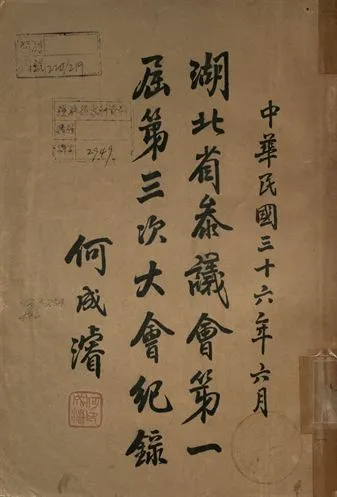 中華民國三十六年六月
湖北省參議會第一
屆第三次大會紀錄
何成濬
2949